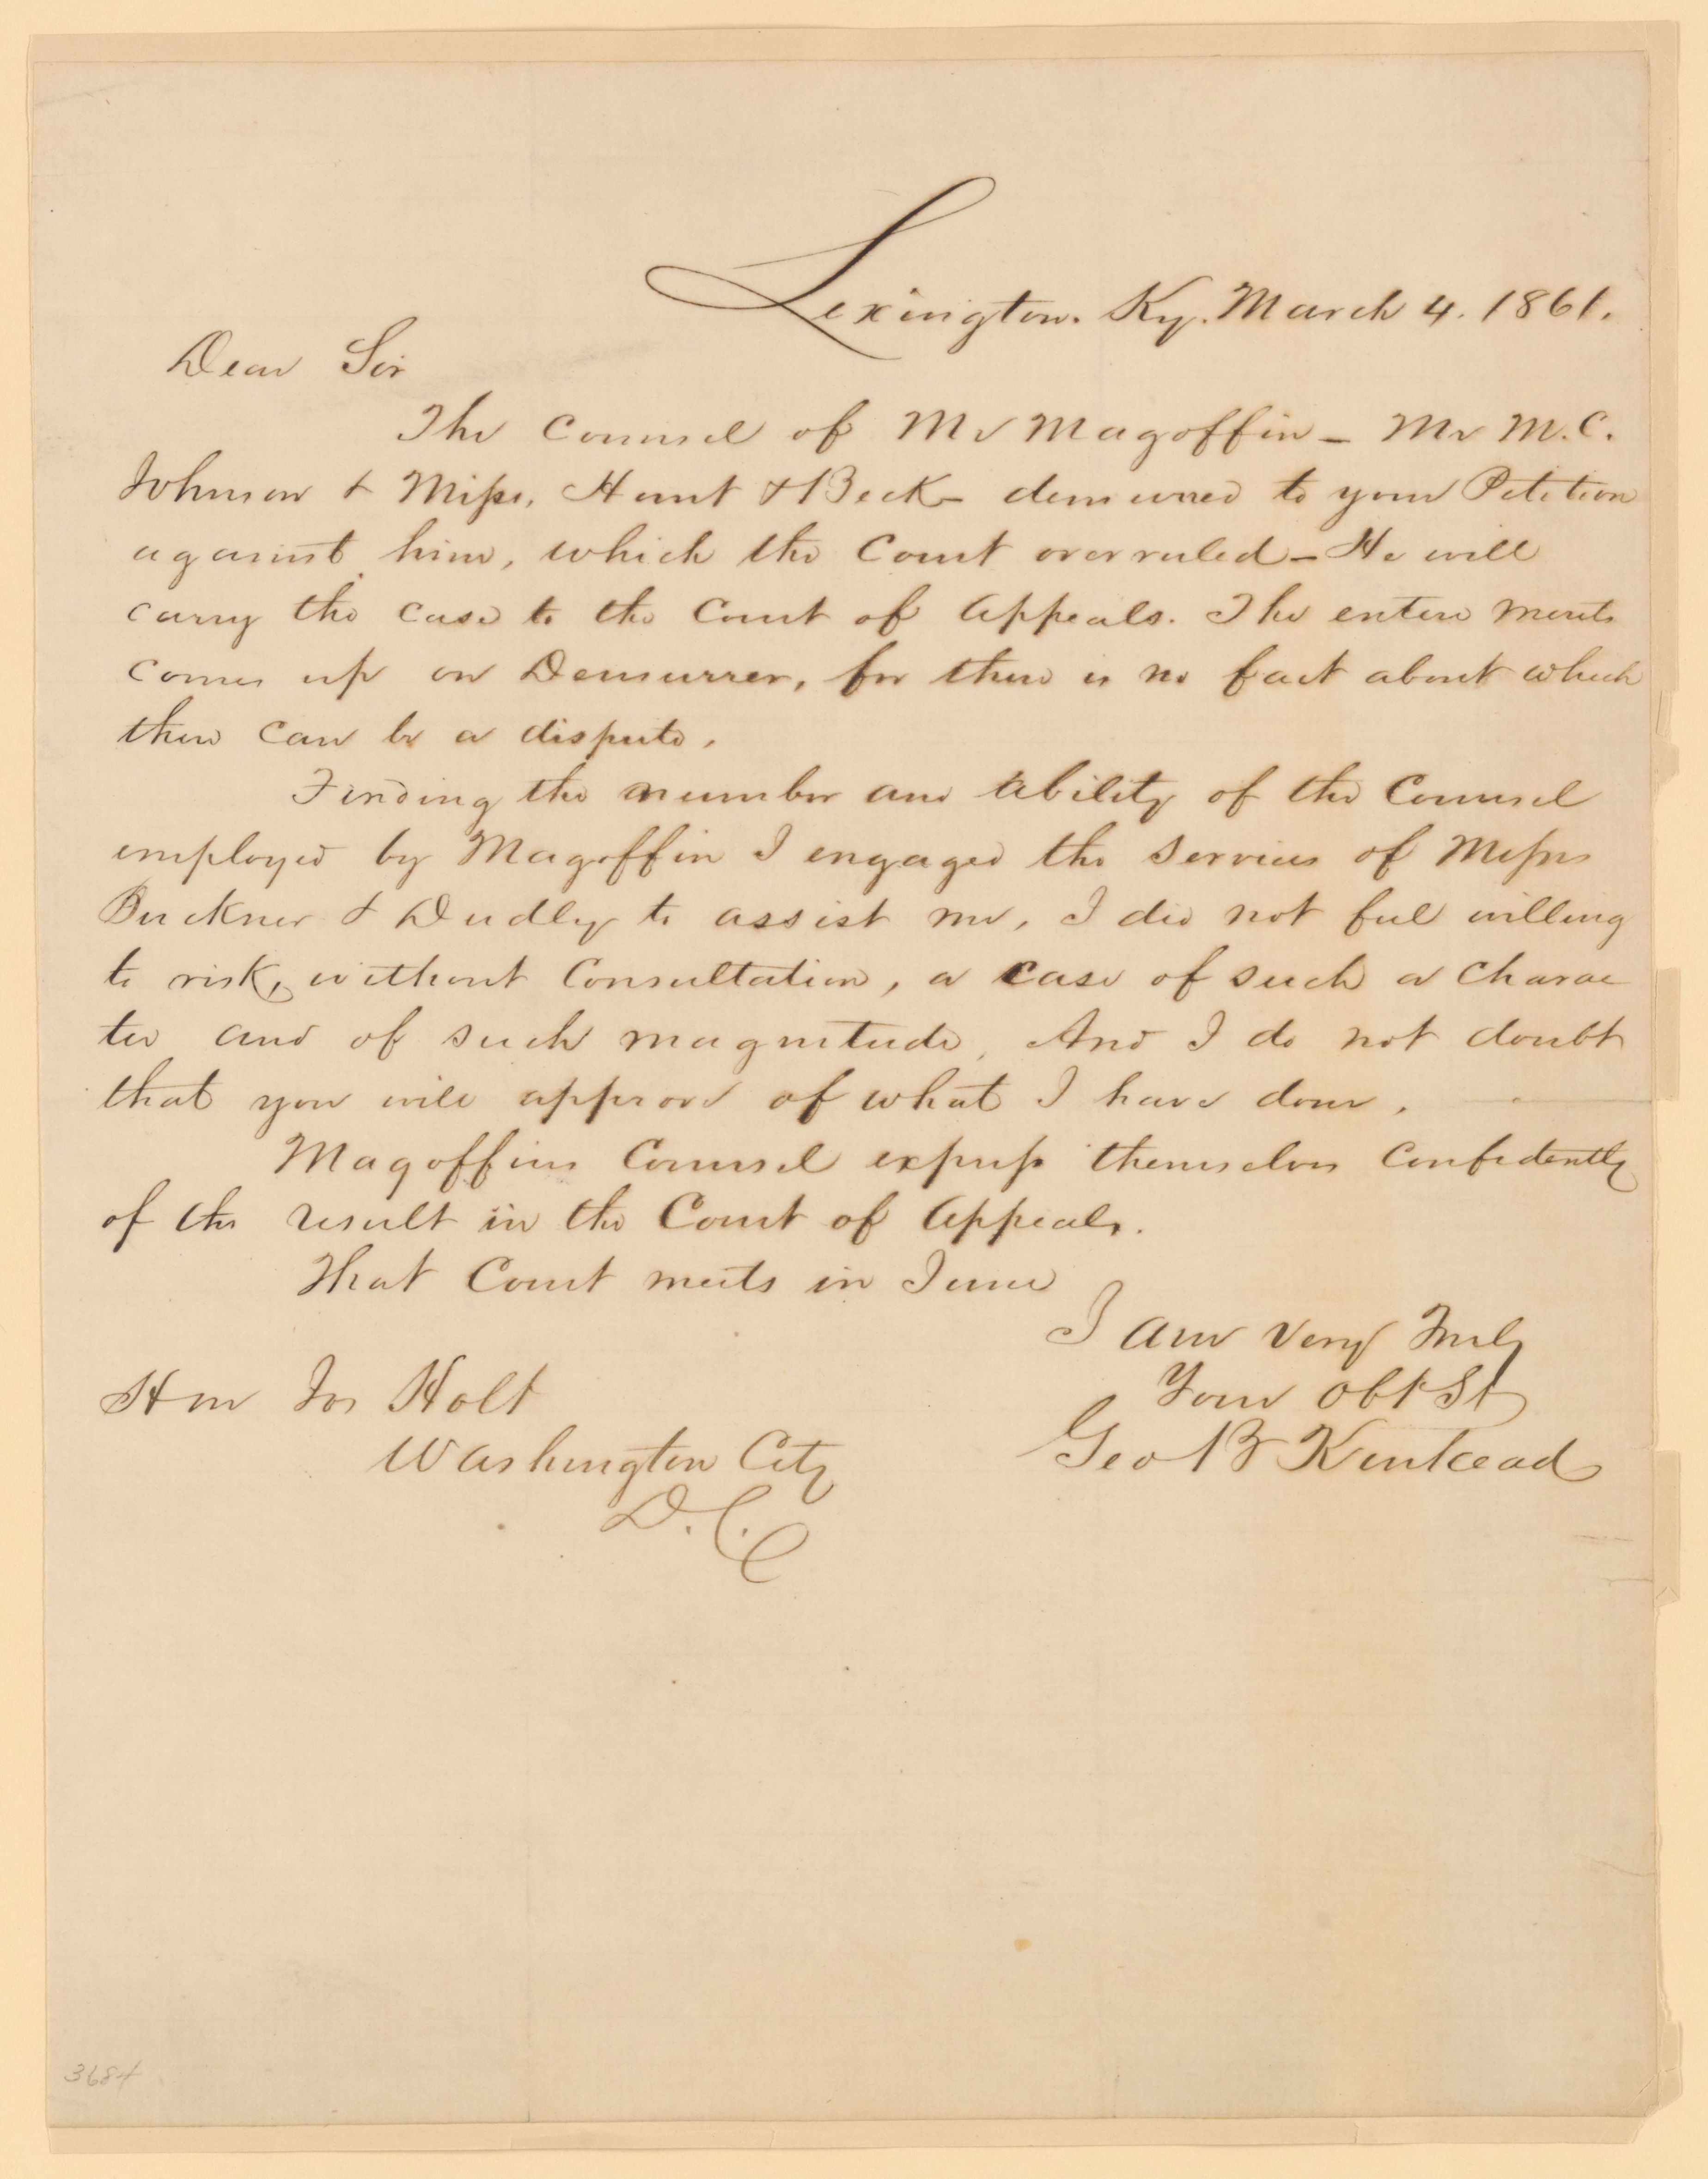 Lexington. Ky. March 4. 1861.
Dear Sir
The Counsel of Mr Magoffin - Mr M.C.
Johnson & Messrs. Hunt & Beck - demurred to your Petition
against him, which the Court overruled - He will
carry the case to the Court of Appeals. The entire merits
comes up on Demurrer, for there is no fact about which
there can be a dispute.
Finding the number and ability of the Counsel
employed by Magoffin I engaged the services of Messrs
Buckner & Dudley to assist me, I did not feel willing
to risk, without Consultation, a case of such a charac
ter and of such magnitude, And I do not doubt
that you will approve of what I have done.
Magoffins Counsel express themselves Confidently
of the result in the Court of Appeals.
That Court meets in June
I am very Truly
Your Obt St
Geo B Kinkead
Hon Jos Holt
Washington City
D.C.
3684